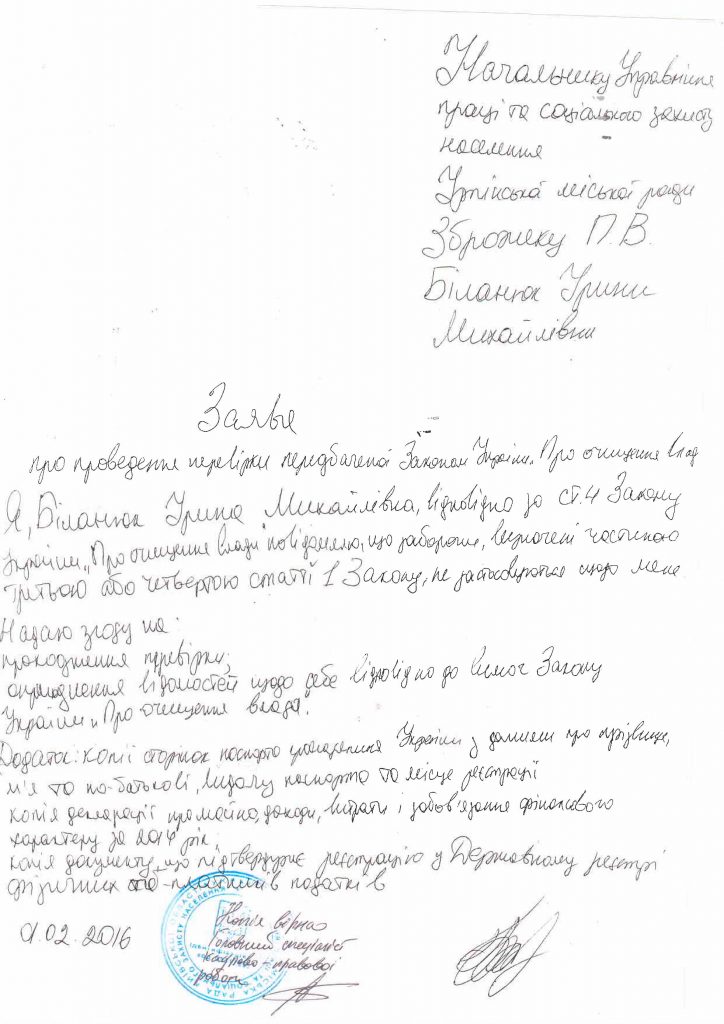 Начальнику Управління
праці та соціального захисту
населення
Ірпінської міської ради
Зброжеку П.В.
Біланюк Ірини
Михайлівни
Заява
про проведення перевірки передбаченої Законом України „Про очищення влад
Я, Біланюк Ірина Михайлівна, відповідно до ст.4 Закону
України „Про очищення влади" повідомляю, що заборони, визначені частиною
третьою або четвертою статті 1 Закону, не застосовуються щодо мене
Надаю згоду на:
проходження перевірки;
оприлюднення відомостей щодо себе відповідно до вимог Закону
України „Про очищення влади".
Додаток: копії сторінок паспорта громадянина України з даними про прізвище,
м'я та по-батькові, видачу паспорта та місце реєстрації
копія декларації про майно, доходи, витрати і зобов'язання фінансового
характеру за 2014 рік
копія документу, що підтверджує реєстрацію у Державному реєстрі
фізичних платників податків
01.02.2016
Копія вірна
Головний спеціаліст
кадрово-правової
роботи